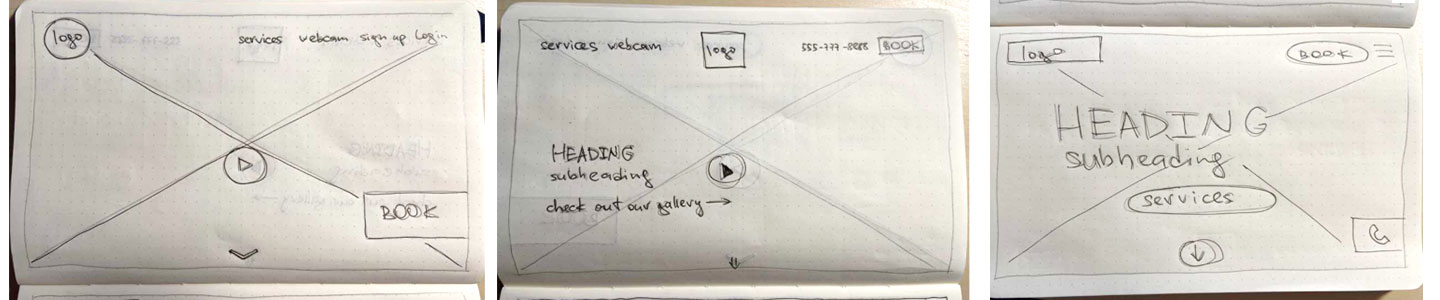 logo
services webcam sign up Login
BOOK
services webcam
logo
555-777-8888 BOOK
HEADING
subheading
check out our gallery →
logo
BOOK
HEADING
subheading
services